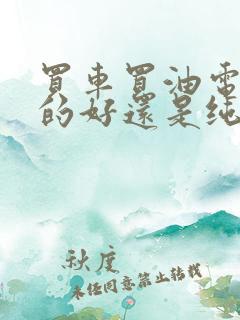 買車買油電
的好還是純
秋度
未经同意禁止转载